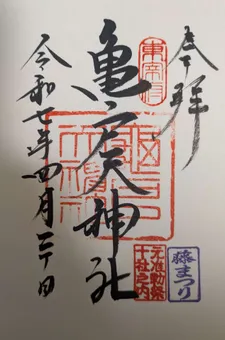 奉拝
東宰府
亀戸天神社
元准勅祭
十社之内
藤まつり
令和七年四月二十日